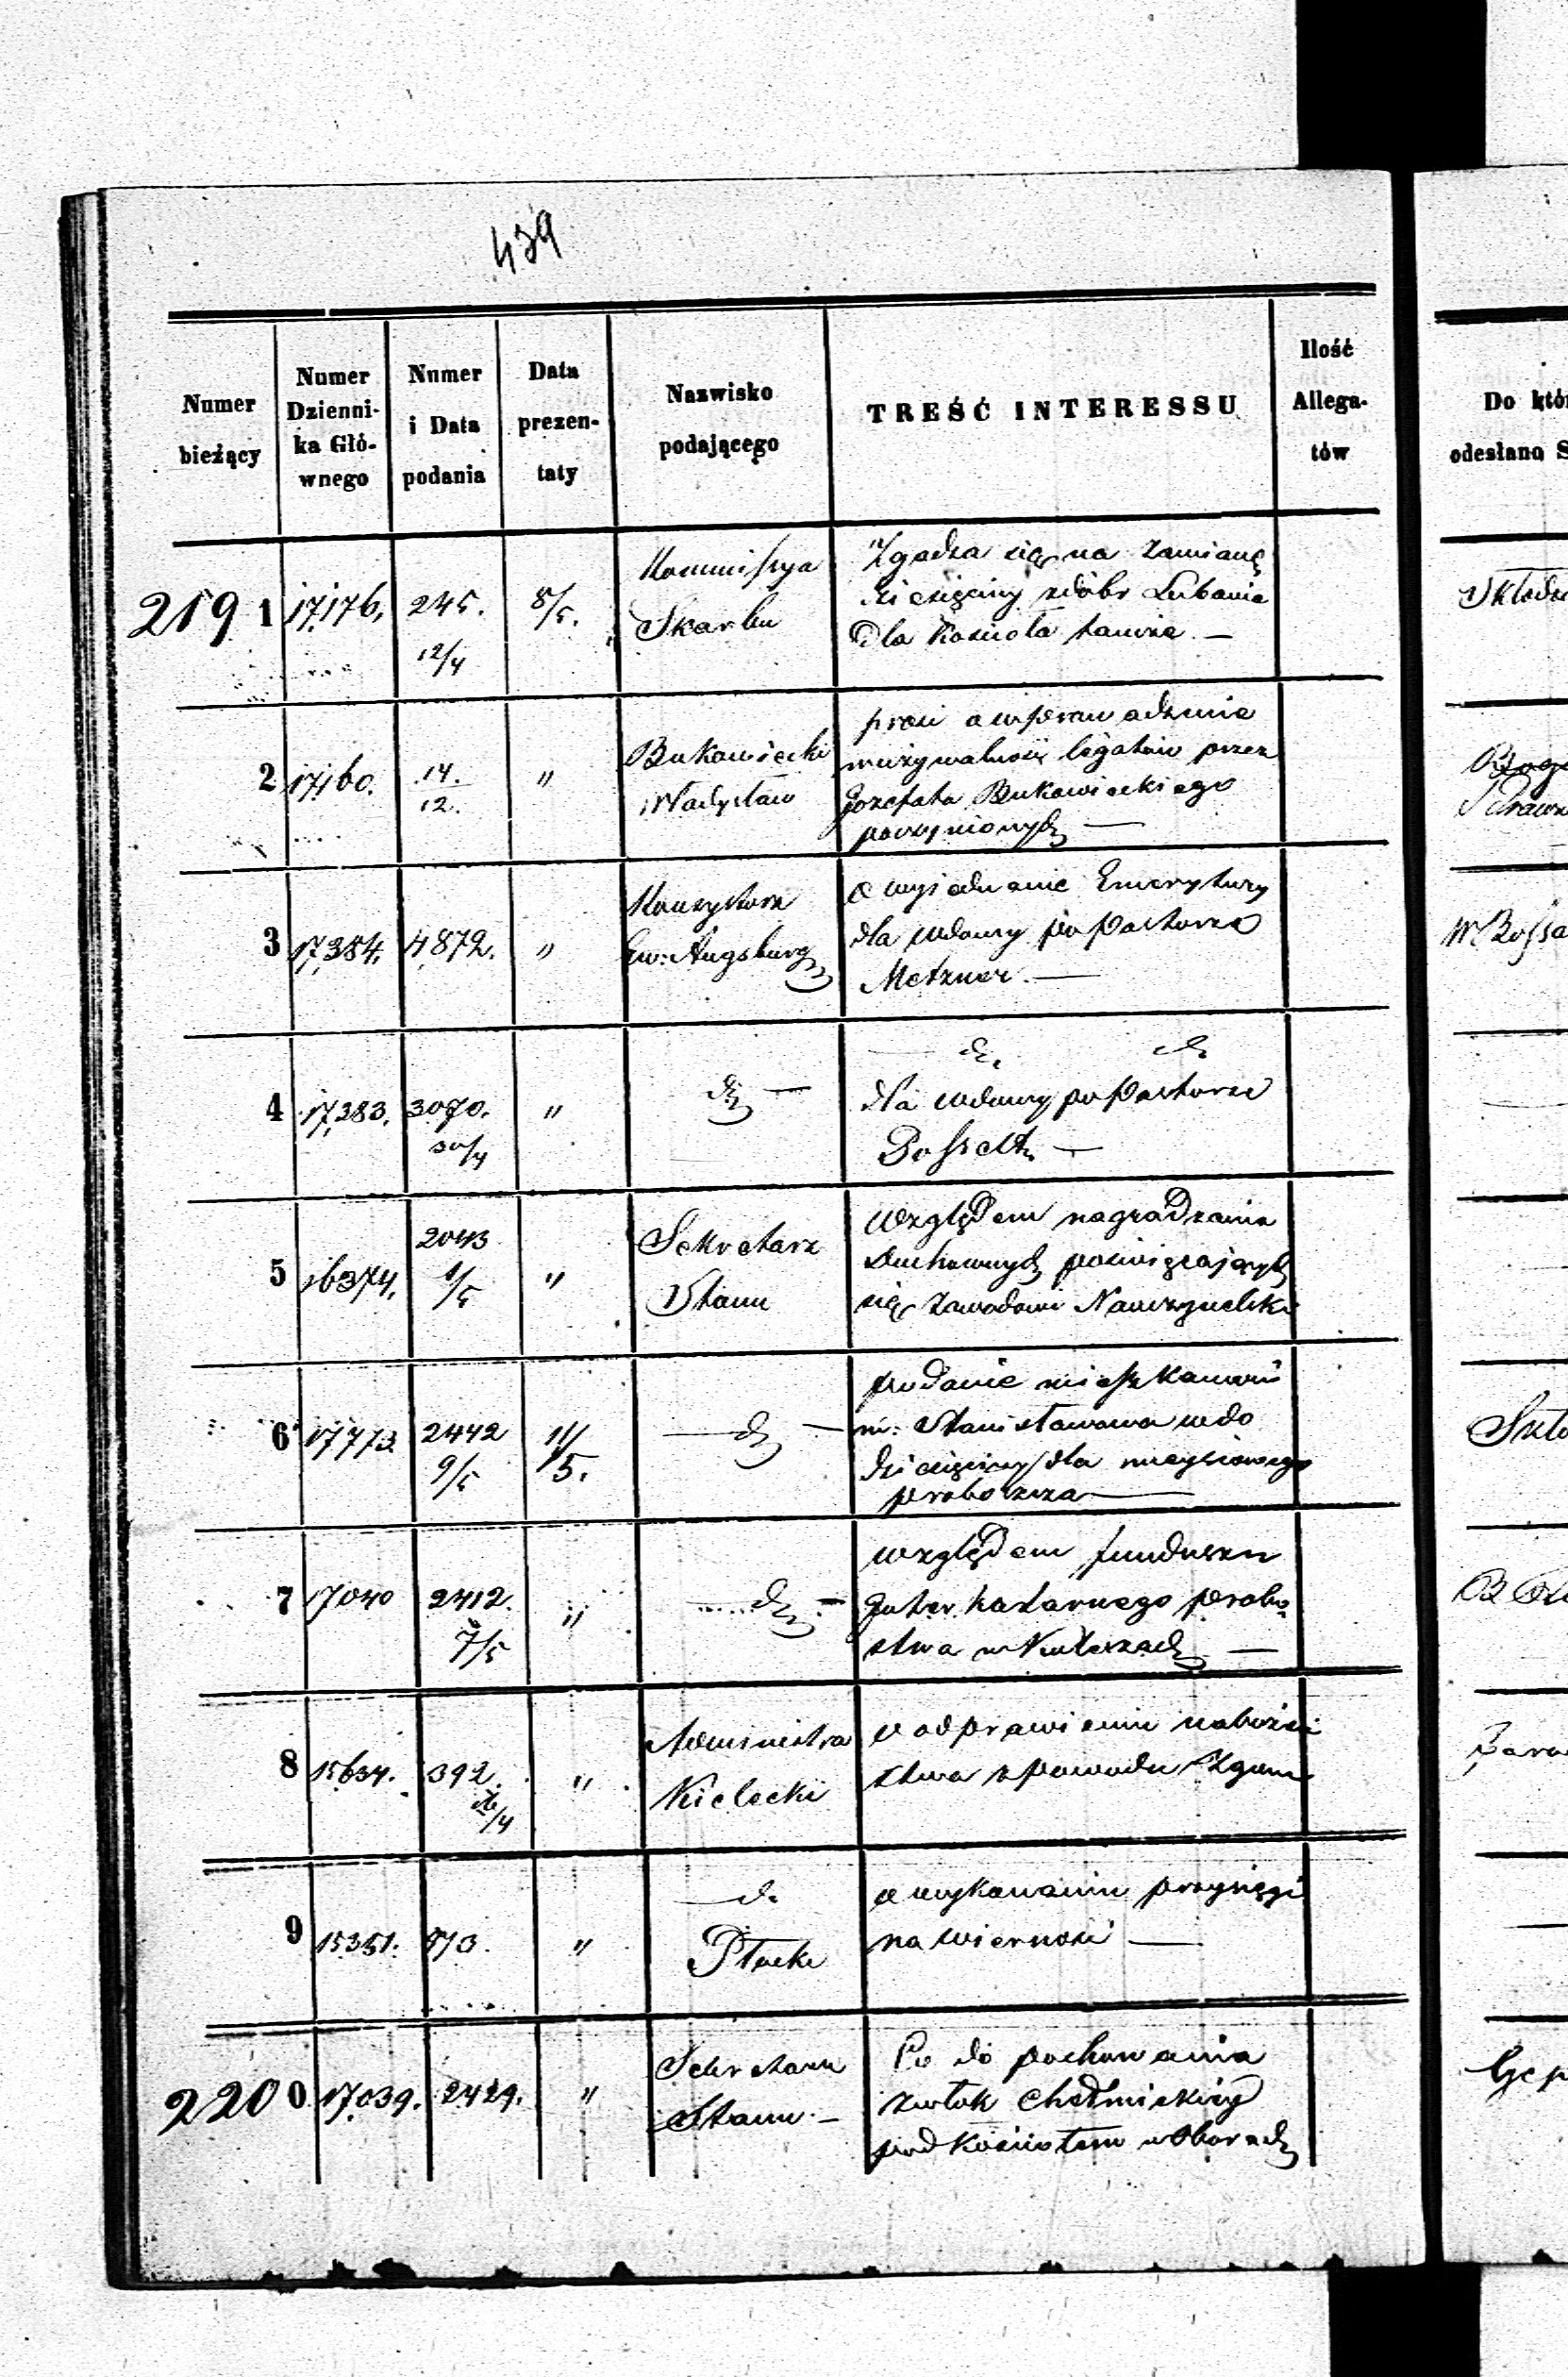 439
Numer bieżący
Numer Dzienni-ka Głó-wnego
Numer i Data podania
Data prezen-taty
Nazwisko podającego
TREŚĆ INTERESSU
Ilość Allega-tów
Do któ
odesłano S
2191 17,176, 245. 12/4 8/5.
Kommissya
Skarbu
Zgadza się na zamianę
dziesięciny z dóbr Lubania
dla Kościoła tamże. —
2 17,160. 14. 12. "
Bukowiecki
Władysław
prosi o wprowadzenie
w używalność legatów przez
Jozefata Bukowieckiego
poczynionych —
3 17,384. 4872. "
Konsystorz
Ew: Augsburg
o wyjednanie Emerytury
dla wdowy po Pastorze
Metzner. —
4 17,383. 3070. 30/4 "
do —
— do do
dla wdowy po Pastorze
Posselt —
5 16374. 2043 1/5 "
Sekretarz
Stanu
Względem nagradzania
duchownych poświęcających
się zawodowi Nauczycielski
6 17773 2442 9/5 11/5.
— do —
podanie mieszkańców
m: Stanisławowa wzdo
dziesięciny dla miejscowego
proboszcza —
7 17040 2412. 7/5 "
do —
względem funduszu
Interkalarnego probo
stwa w Kuleszach —
8 15634. 392. "
Administra
Kielecki
o odprawieniu nabożeń
stwa z powodu Zgonu
9 15351. "
— do
Płocki
o wykonaniu przysięgi
na wierność —
2200 17,039. 2429. "
Sekretarz
Stanu. —
Co do pochowania
zwłok Chełmickiéj
pod Kościołem w Oborach